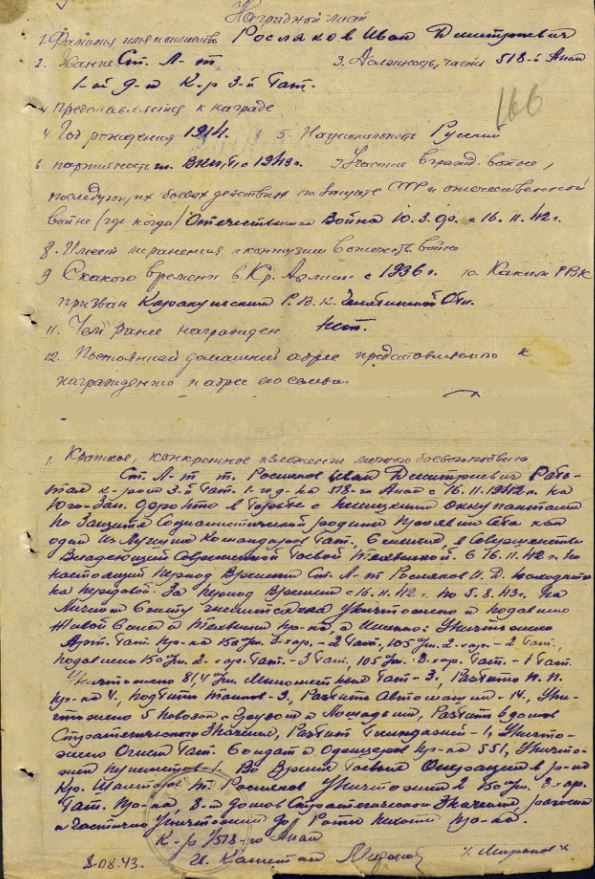 Наградной лист
1. Фамилия имя и отчество Росляков Иван Дмитриевич
2. Звание Ст. Л-т 3. Должность, часть 518-й Апап
1-ой д-н К-р 3-й Бат.
166
4 Представляется к награде
4 Год рождения 1914г. 5. Национальность Русский
6 партийность чл. ВКП/б с 1943г. 7 Участие в гражд. войне,
последующих боевых действиях по защите СССР и отечественной
войне (где когда) Отечественная Война Ю.З.Ф. с 16.11.42г.
8. Имеет ли ранения и контузии в отечеств. войне
9 С какого времени в Кр. Армии с 1936г. 10. Каким РВК
призван Р.В.К. Челябинской Обл.
11. Чем ранее награжден Нет.
12. Постоянный домашний адрес представляемого к
награждению и адрес его семьи.
1. Краткое, конкретное изложение личного боевого подвига
Ст. Л-т т. Росляков Иван Дмитриевич Рабо-
тая к-ром 3-й Бат. 1-го д-на 518-го Апап с 16.11.1942г. на
Юго-Зап. фронте в борьбе с немецкими оккупантами
по Защите Социалистической родины проявил себя как
один из Лучших Командиров Бат. в совершенстве
Владеющий Современной боевой техникой. С 16.11.42г. по
настоящий период Времени Ст. Л-т Росляков И.Д. находится
на передовой. За период Времени с 16.11.42г. по 5.8.43г. На
Личном Счету Уничтожено и подавлено
Живой силы и техники пр-ка, а именно: Уничтожено
Арт. Бат. пр-ка 150 м.м. 3-х ор. - 2 Бат., 105 м.м. 2-х ор. - 2 Бат.,
подавлено 150 м.м. 2-х ор. Бат. - 3 Бат., 105 м.м. 3-х ор. Бат. - 1 Бат.
Уничтожено 81,4 м.м. Минометных Бат - 3, Разбито Н.П.
пр-ка 4, подбито танков - 3, Разбито Автомашин - 14, Уни-
чтожено 5 повозок с грузом и Лошадьми, Разбит домов
Стратегического Значения, Разбит - 1, Уничто-
жено Огнем Бат. Солдат и Офицеров пр-ка 551, Уничто-
жил пулеметов - 1. Во Время боевой Операции в р-не
т. Росляков Уничтожил 2 150 м.м. 3-х ор.
Бат. пр-ка, 8-й домов Стратегического Значения, рассеял
и частично Уничтожил до Роты пехоты пр-ка.
К-р 518-го Апап
8.08.43. Капитан /Миронов/